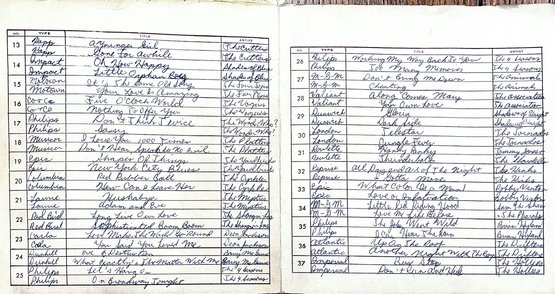 NO. TYPE TITLE ARTIST
13 Kapp A Younger Girl The Critters
Kapp Gone For Awhile The Critters
14 Impact Oh How Happy Shades of Blue
Impact Little Orphan Boy Shades of Blue
15 Motown It's The Same Old Song The Four Tops
Motown Your Love Is Amazing The Four Tops
16 Co & Ce Five O'Clock World The Vogues
Co & Ce Nothing To Offer You The Vogues
17 Philips Don't Think Twice The Wonder Who?
Philips Sassy The Wonder Who?
18 Musicor I Love You 1000 Times The Platters
Musicor Don't Hear, Speak, See No Evil The Platters
19 Epic Shapes Of Things The Yardbirds
Epic New York City Blues The Yardbirds
20 Columbia Red Rubber Ball The Cyrkle
Columbia How Can I Leave Her The Cyrkle
21 Laurie The Mystics
Laurie Adam and Eve The Mystics
22 Red Bird Long Live Our Love The Shangri-Las
Red Bird Sophisticated Boom Boom The Shangri-Las
23 Carla Let's Make The World Go Round Deon Jackson
Carla You Said You Loved Me Deon Jackson
24 Dunhill Eve of Destruction Barry McGuire
Dunhill What Exactly's The Matter With Me Barry McGuire
25 Philips Let's Hang On The 4 Seasons
Philips On Broadway Tonight The 4 Seasons
NO. TYPE TITLE ARTIST
26 Philips Working My Way Back To You The 4 Seasons
Philips Too Many Memories The 4 Seasons
27 M-G-M Don't Bring Me Down The Animals
M-G-M Cheating The Animals
28 Valiant Along Comes Mary The Association
Valiant Your Own Love The Association
29 Dunwich Gloria Shadows of Knight
Dunwich Dark Side Shadows of Knight
30 London Telstar The Tornadoes
London Jungle Fever The Tornadoes
31 Roulette
Roulette Thunderbolt
32 Reprise All Day and All of The Night The Kinks
Reprise I Gotta Move The Kinks
33 Epic What Color (Is A Man) Bobby Vinton
Epic Love or Infatuation Bobby Vinton
34 M-G-M Little Red Riding Hood Sam The Sham
M-G-M Love Me Like Before & The Pharaohs
35 Philips The Joker Went Wild Brian Hyland
Philips I Can Hear The Rain Brian Hyland
36 Atlantic Up On The Roof The Drifters
Atlantic Another Night With The Boys The Drifters
37 Imperial Bus Stop The Hollies
Imperial Don't Run And Hide The Hollies